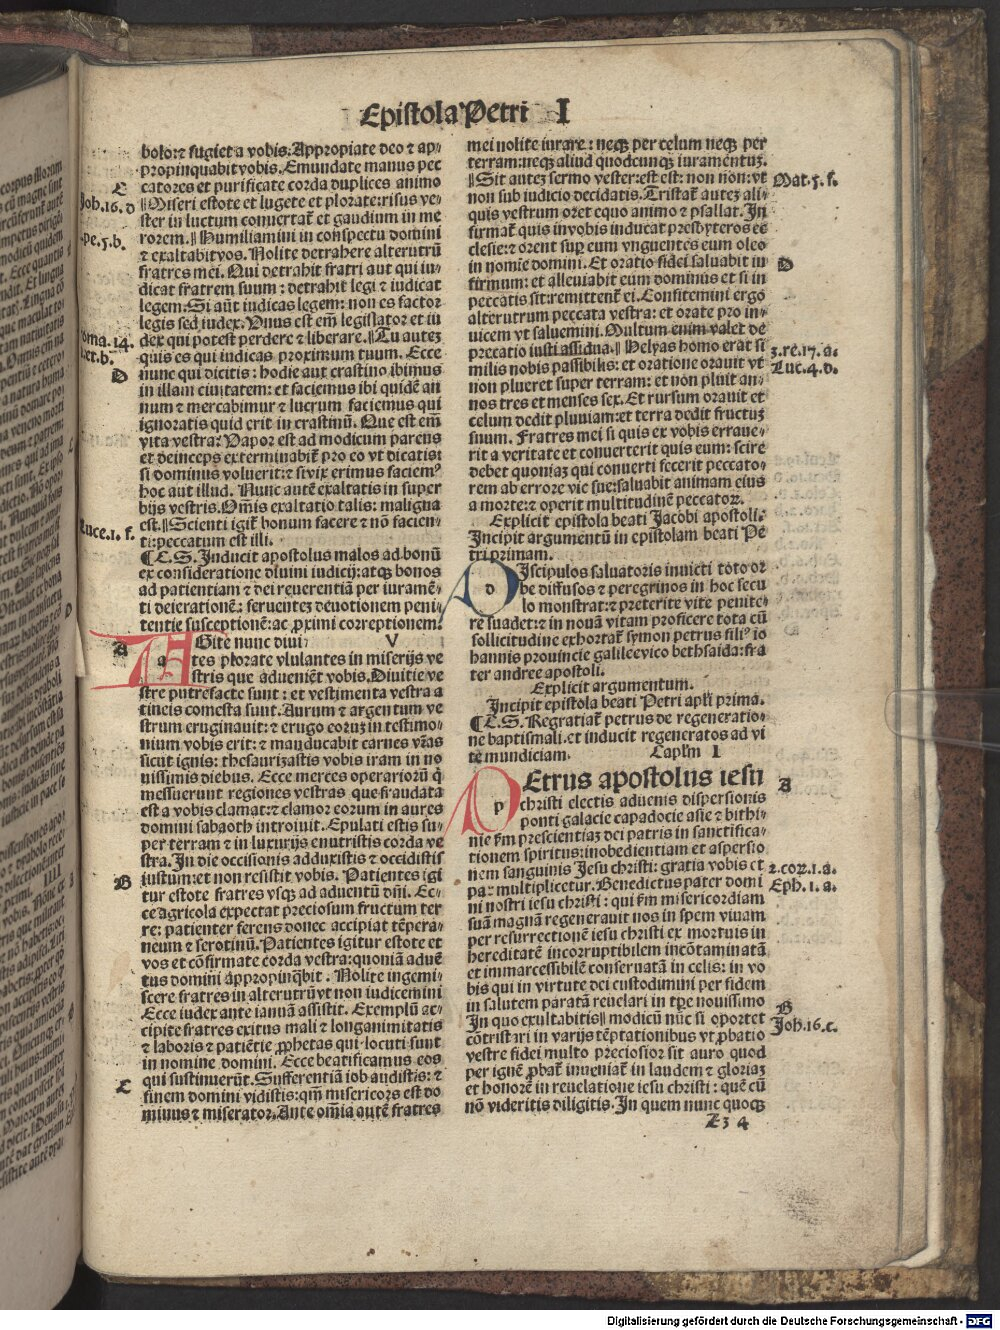 Epistola Petri I
bolo: ⁊ fugiet a vobis. Appropiate deo ⁊ ap⸗
propinquabit vobis. Emundate manus pec
catores et purificate corda duplices animo
‖Miseri estote et lugete et plorate: risus ve⸗
ster in luctum conuertat᷑ et gaudium in me
rorem.‖Humiliamini in conspectu domini
⁊ exaltabit vos. Nolite detrahere alterutrū
fratres mei. Qui detrahit fratri aut qui iu⸗
dicat fratrem suum : detrahit legi ⁊ iudicat
legem. Si aūt iudicas legem: non es factor
legis sed iudex. Vnus est em̄ legislator et iu
dex qui potest perdere ⁊ liberare.‖Tu auteꝫ
quis es qui iudicas proximum tuum. Ecce
nunc qui dicitis : hodie aut crastino ibimus
in illam ciuitatem: et faciemus ibi quidē an
num ⁊ mercabimur ⁊ lucrum faciemus qui
ignoratis quid erit in crastinū. Que est em̄
vita vestra: Vapor est ad modicum parens
et deinceps exterminabit᷑ pro eo vt dicatis:
si dominus voluerit: ⁊ si vixerimus faciemꝰ
hoc aut illud. Nunc autē exaltatis in super
bijs vestris. Om̄is exaltatio talis: maligna
est.‖Scienti igit᷑ bonum facere ⁊ nō facien⸗
ti: peccatum est illi.
¶C. S. Inducit apostolus malos ad bonū
ex consideratione diuini iudicij: atqꝫ bonos
ad patientiam ⁊ dei reuerentiā per iuramē⸗
ti deierationē: feruentes deuotionem peni⸗
tentie susceptionē: ac ꝓximi correptionem.
AGite nunc diui V
a tes plorate vlulantes in miserijs ve
stris que aduenient vobis. Diuitie ve
stre putrefacte sunt : et vestimenta vestra a
tineis comesta sunt. Aurum ⁊ argentum ve
strum eruginauit: ⁊ erugo eoruꝫ in testimo⸗
nium vobis erit: ⁊ manducabit carnes vr̄as
sicut ignis: thesaurizastis vobis iram in no
uissimis diebus. Ecce merces operariorū q̄
messuerunt regiones vestras que fraudata
est a vobis clamat: ⁊ clamor eorum in aures
domini sabaoth introiuit. Epulati estis su⸗
per terram ⁊ in luxurijs enutristis corda ve
stra. In die occisionis adduxistis ⁊ occidistis
iustum: et non resistit vobis. Patientes igi
tur estote fratres vsqꝫ ad aduentū dn̄i. Ec⸗
ce agricola expectat preciosum fructum ter
re: patienter ferens donec accipiat tēpera⸗
neum ⁊ serotinū. Patientes igitur estote et
vos et cōfirmate corda vestra: quoniā aduē
tus domini appropinq̄bit . Nolite ingemi⸗
scere fratres in alterutrū vt non iudicemini
Ecce iudex ante ianuā assistit. Exemplū ac⸗
cipite fratres exitus mali ⁊ longanimitatis
⁊ laboris ⁊ patiētie ꝓphetas qui locuti sunt
in nomine domini. Ecce beatificamus eos
qui sustinuerūt. Sufferentiā iob audistis: ⁊
finem domini vidistis: qm̄ misericors est do
minus ⁊ miserator. Ante om̄ia autē fratres
C
Joh. 16. d
.pe. 5. b.
oma. 14.
D
uce. 1. f.
A
B
C
mei nolite iurare : neqꝫ per celum neqꝫ per
terram: neqꝫ aliud quodcunqꝫ iuramentuꝫ.
‖Sit auteꝫ sermo vester: est est: non non: vt
non sub iudicio decidatis. Tristat᷑ auteꝫ ali⸗
quis vestrum oret equo animo ⁊ psallat. In
firmat᷑ quis in vobis inducat presbyteros ec
clesie: ⁊ orent suꝑ eum vnguentes eum oleo
in nomīe domini. Et oratio fidei saluabit in
firmum: et alleuiabit eum dominus et si in
peccatis sit: remittent᷑ ei. Confitemini ergo
alterutrum peccata vestra: et orate pro in⸗
uicem vt saluemini. Multum enim valet de
precatio iusti assidua.‖Helyas homo erat si
milis nobis passibilis: et oratione orauit vt
non plueret super terram: et non pluit an⸗
nos tres et menses sex. Et rursum orauit et
celum dedit pluuiam: et terra dedit fructuꝫ
suum. Fratres mei si quis ex vobis erraue⸗
rit a veritate et conuerterit quis eum: scire
debet quoniaꝫ qui conuerti fecerit peccato⸗
rem ab errore vie sue: saluabit animam eius
a morte: ⁊ operit multitudinē peccatoꝝ.
Explicit epistola beati Jacobi apostoli.
Incipit argumentū in epistolam beati Pe
tri primam.
DIscipulos saluatoris inuicti toto or
d be diffusos ⁊ peregrinos in hoc secu
lo monstrat: ⁊ preterite vite penite⸗
re suadet: ⁊ in nouā vitam proficere tota cū
sollicitudine exhortat᷑ symon petrus filiꝰ io
hannis prouincie galilee vico bethsaida: fra
ter andree apostoli.
Explicit argumentum.
Incipit epistola beati Petri apl̄i prima.
¶C. S. Regratiat᷑ petrus de regeneratio⸗
ne baptismali. et inducit regeneratos ad vi
te mundiciam. Capl̄m I
PEtrus apostolus iesu
p christi electis aduenis dispersionis
ponti galacie capadocie asie ⁊ bithi⸗
nie ẜm prescientiaꝫ dei patris in sanctifica⸗
tionem spiritus: in obedientiam et aspersio
nem sanguinis Jesu christi: gratia vobis et
pax multiplicetur. Benedictus pater domi
ni nostri iesu christi : qui ẜm misericordiam
suā magnā regenerauit nos in spem viuam
per resurrectionē iesu christi ex mortuis in
hereditatē incorruptibilem incōtaminatā
et immarcessibilē conseruatā in celis: in vo
bis qui in virtute dei custodimini per fidem
in salutem paratā reuelari in tp̄e nouissimo
In quo exultabitis‖modicū nūc si oportet
cōtristari in varijs tēptationibus vt ꝓbatio
vestre fidei multo preciosior sit auro quod
per ignē ꝓbat᷑ inueniat᷑ in laudem ⁊ gloriaꝫ
et honorē in reuelatione iesu christi : quē cū
nō videritis diligitis. In quem nunc quoqꝫ
Mat. 5. f.
D
3. re. 17. a.
Luc. 4. d.
A
2. cor. 1. a.
Eph. 1. a.
B
Joh. 16. c.
Digitalisierung gefördert durch die Deutsche Forschungsgemeinschaft - DFG